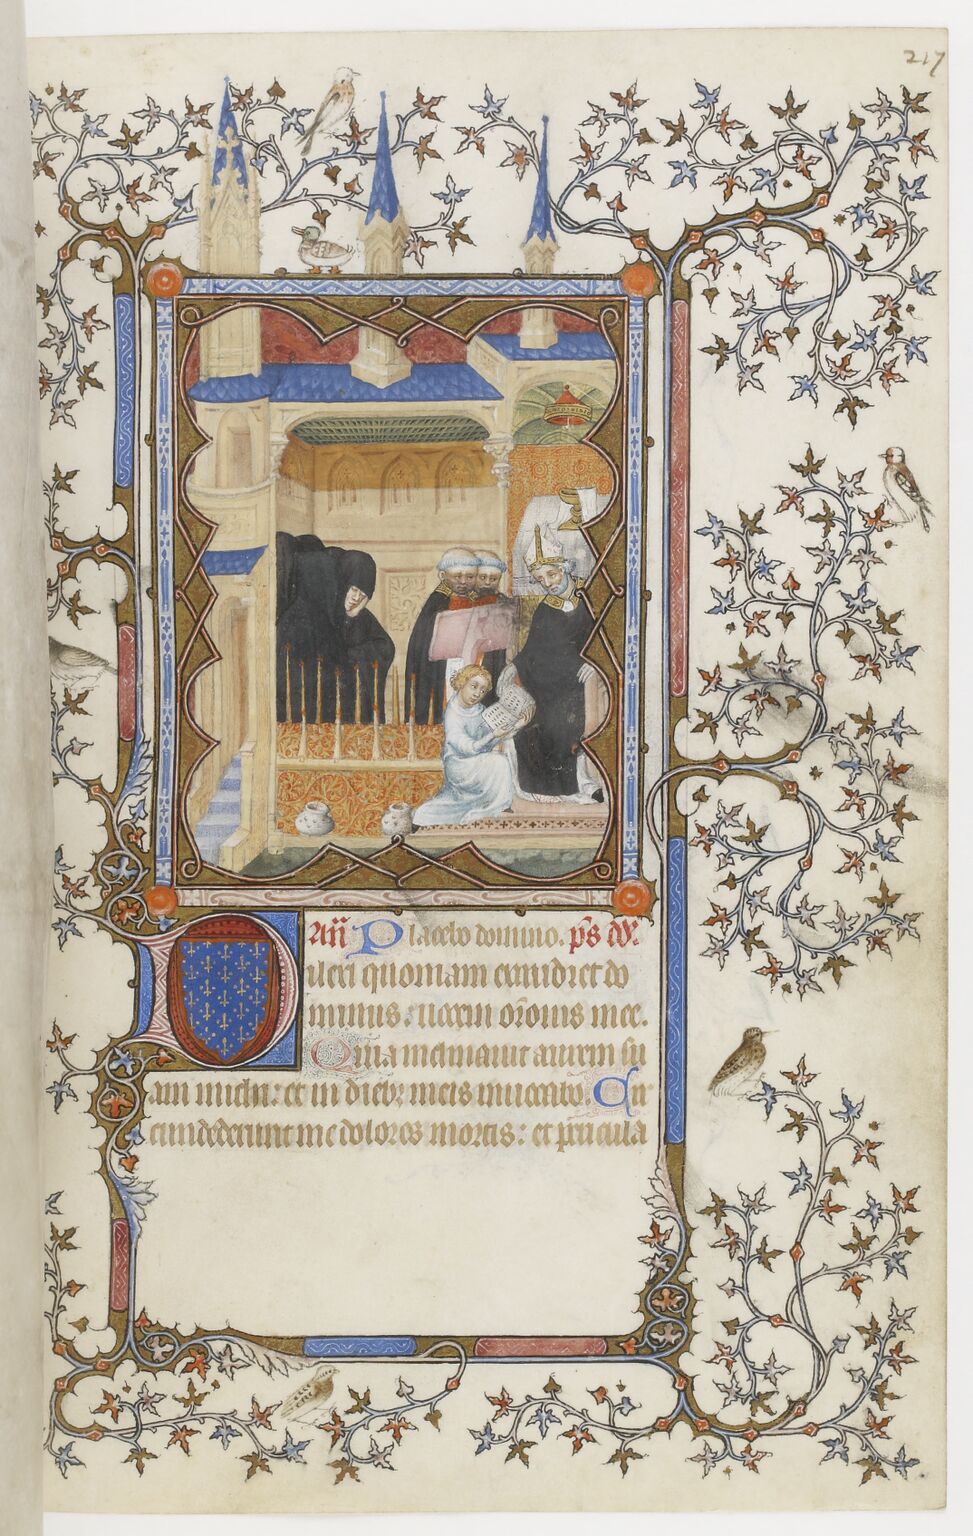 217
Añ Placebo domino. ps̃ dd̃.
Dilexi quoniam exaudiet do
minus: uocem or̃onis mee.
Quia inclinauit aurem su
am michi: et in dieb; meis inuocabo. Cir
cundederunt me dolores mortis: et pericula